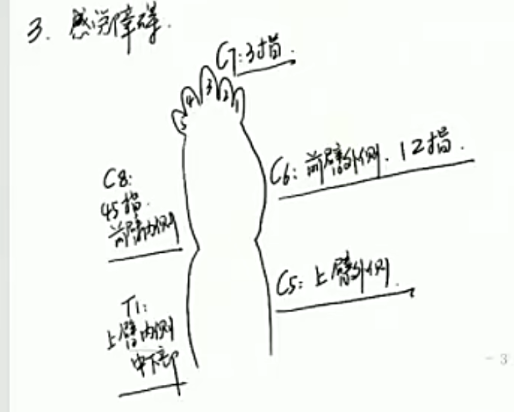 3. 感觉障碍.
C7:3指.
5 4 3 2 1
C6: 前臂外侧. 12指.
C8:
45指.
前臂内侧
C5: 上臂外侧.
T1:
上臂内侧
中下部
- 3